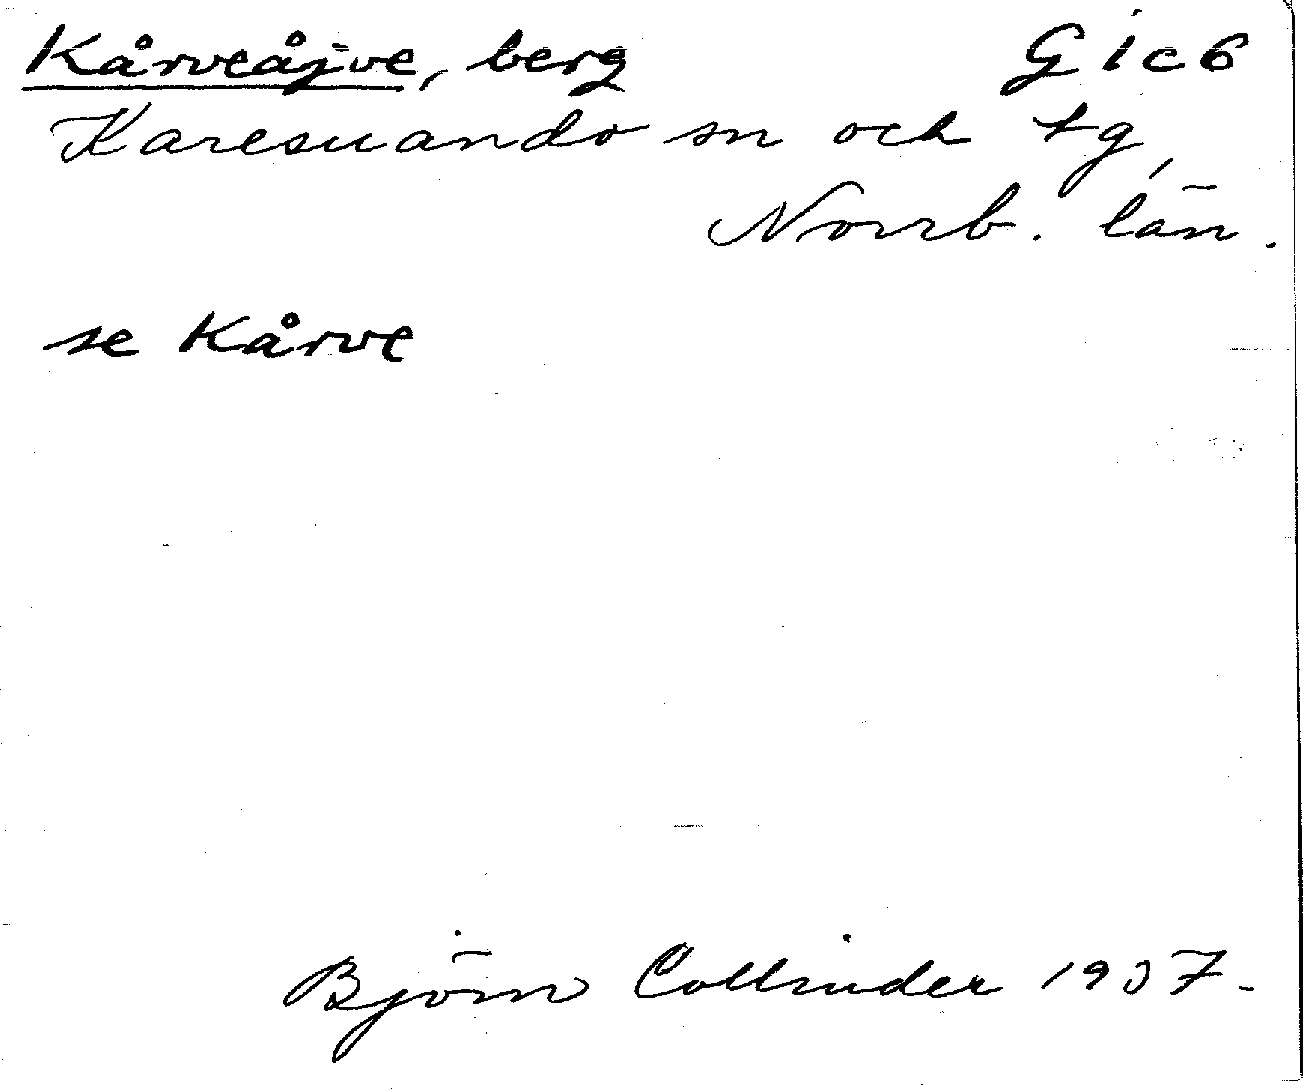 Kårveåjve, berg G i c 6
Karesuando sn och tg,
Norrb. län.
se Kårve
Björn Collinder 1937-